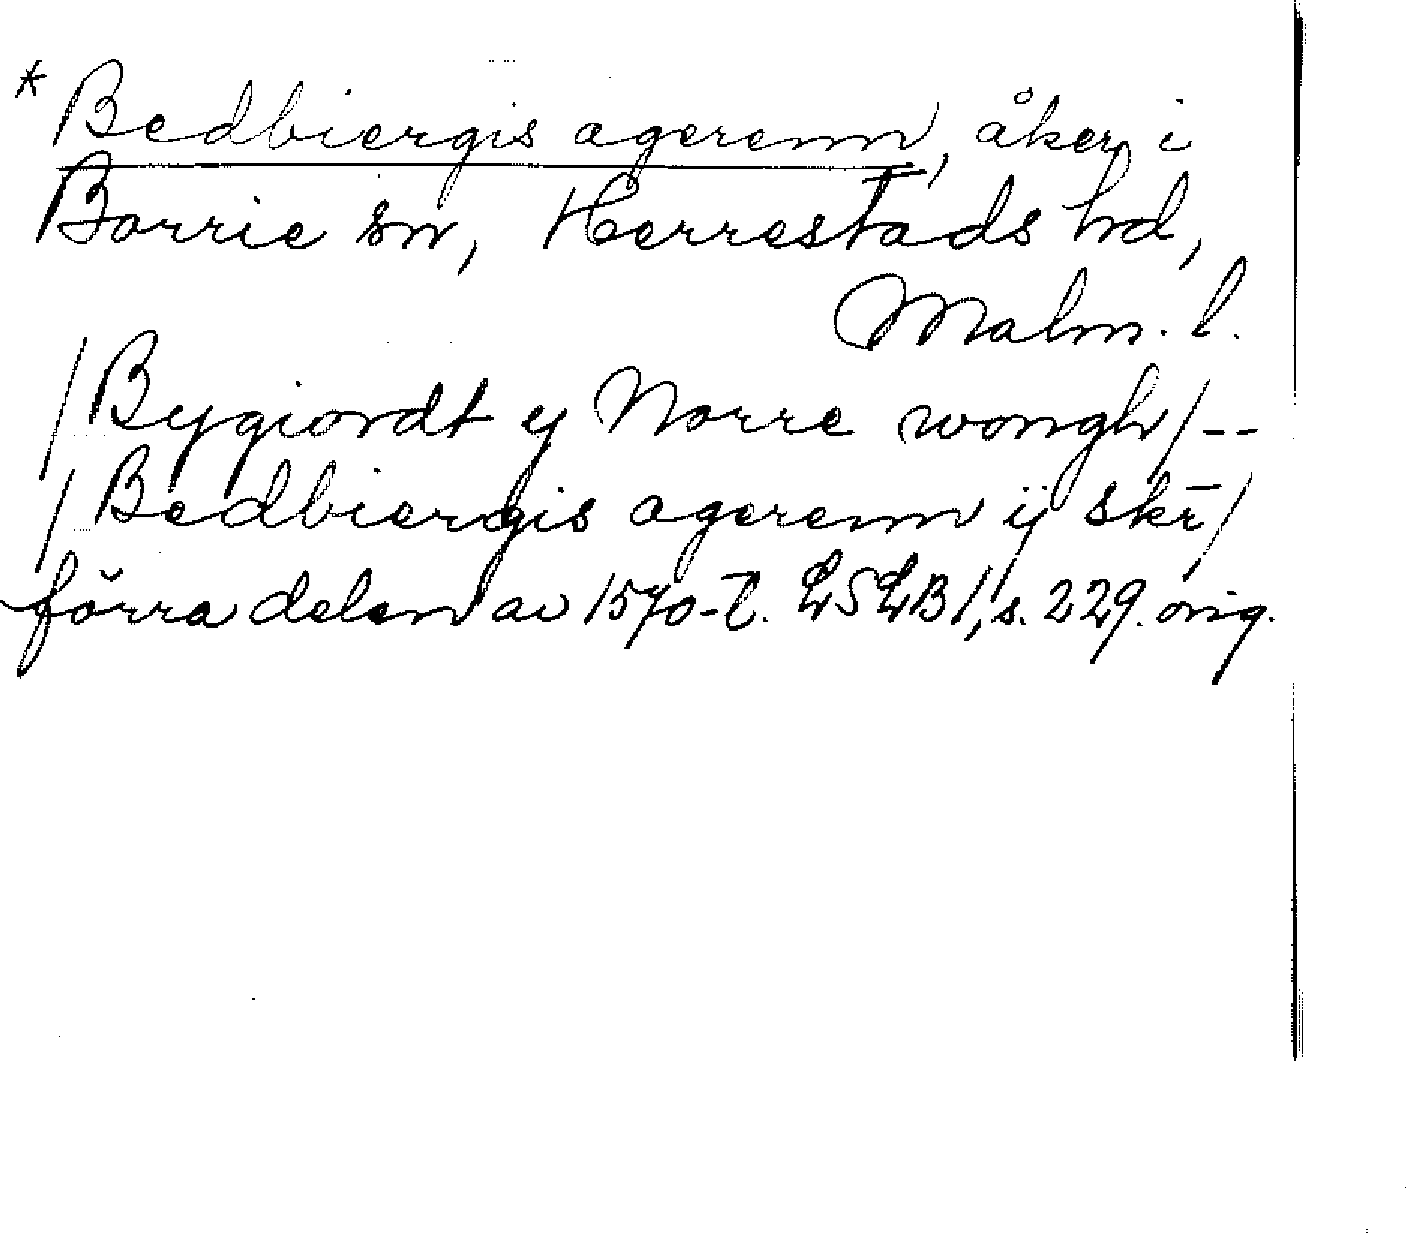 * Bedbiergis agerenn, åker i
Borrie sn, Herrestads hd,
Malm. l.
/Bygiordt ij Norre wongh/--
/Bedbiergis agerenn ij skr̄/
förra delen av 1570-t. LSLB 1, s. 229. orig.